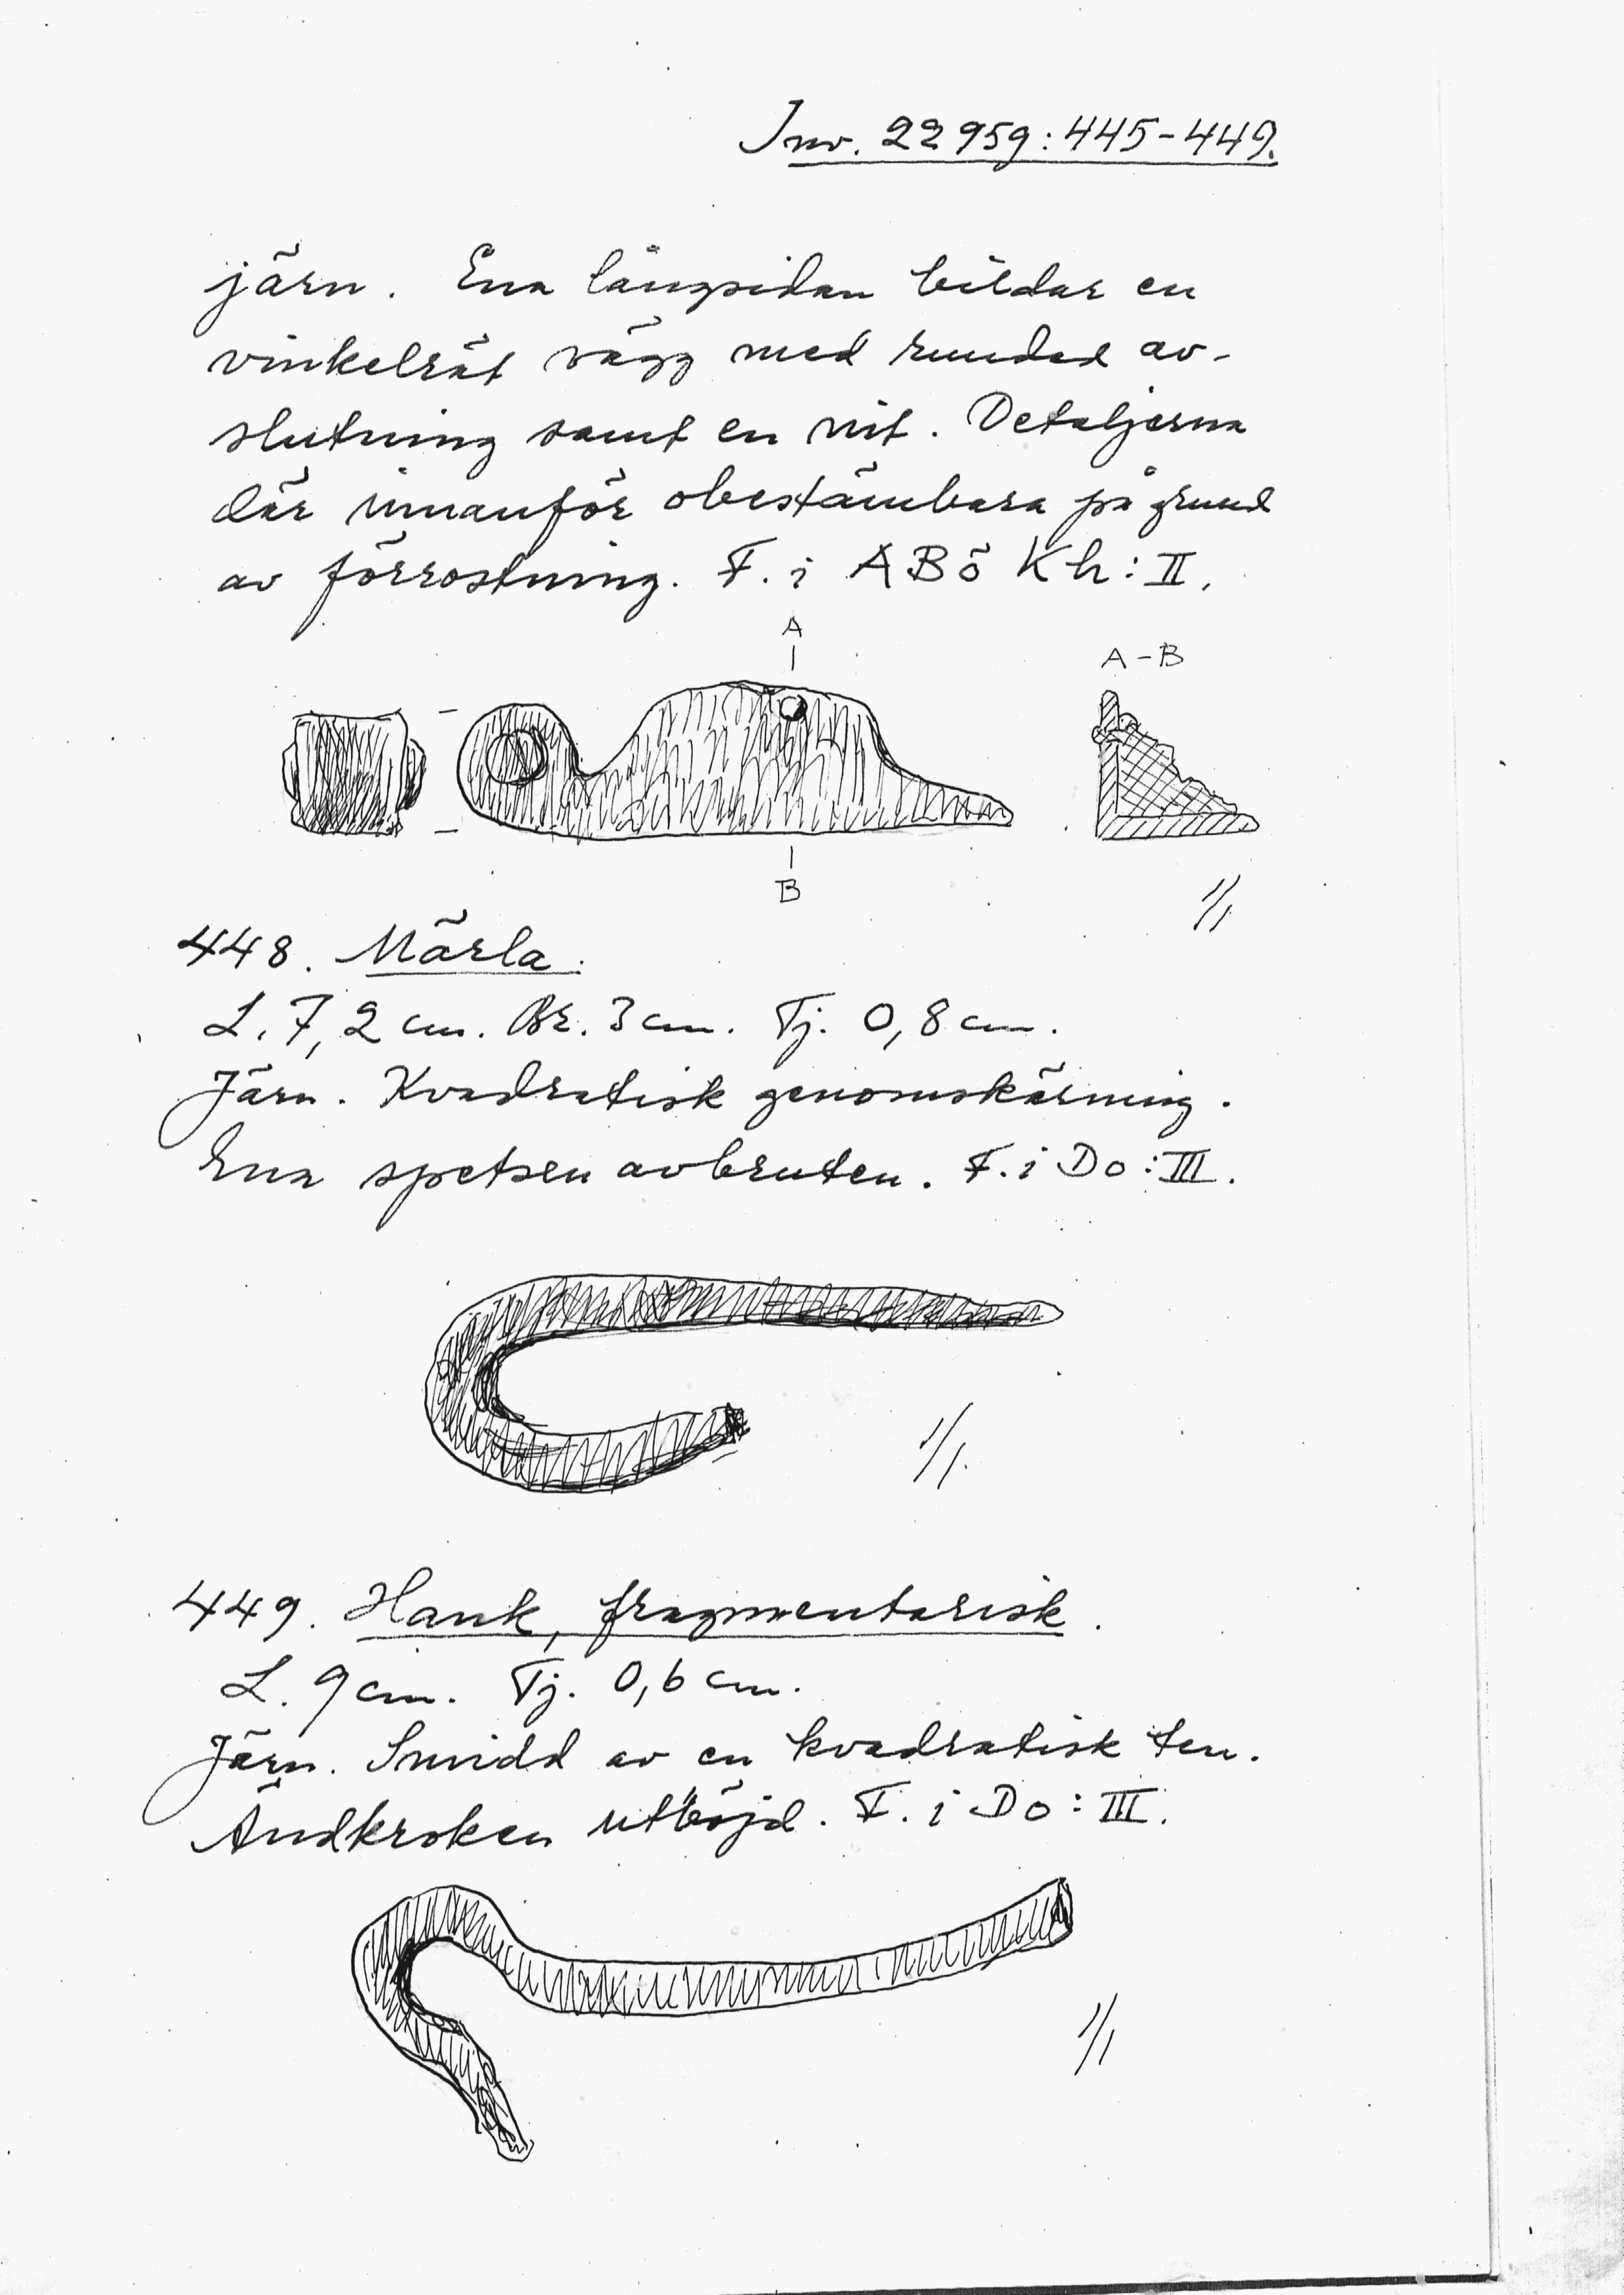 Inv. 22959:445-449.
järn. Ena långsidan bildar en
vinkelrät vägg med rundad av-
slutning samt en nit. Detaljerna
där innanför obestämbara på grund
av förrostning. F. i ABö Kh:II.
A
A-B
B
1/1
448. Märla.
L. 7,2 cm. Br. 3 cm. Tj. 0,8 cm.
Järn. Kvadratisk genomskärning.
Ena spetsen avbruten. F. i Do:III.
1/1.
449. Hank, fragmentarisk.
L. 9 cm. Tj. 0,6 cm.
Järn. Smidd av en kvadratisk ten.
Ändkroken utböjd. F. i Do:III.
1/1